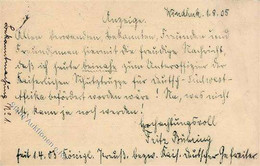 Anzeige. Windhuk, 1.8.05
Allen Verwandten, Bekannten, Freunden und
Freundinnen die freudige Nachricht,
daß ich heute zum Unteroffizier der
Kaiserlichen Schutztruppe für Deutsch-Südwest-
afrika befördert worden wäre! Na, was nicht ist,
kann ja noch werden!
Hochachtungsvoll
Fritz
seit 14. 05 Königl. Preuß. Kais. Deutscher Gefreiter